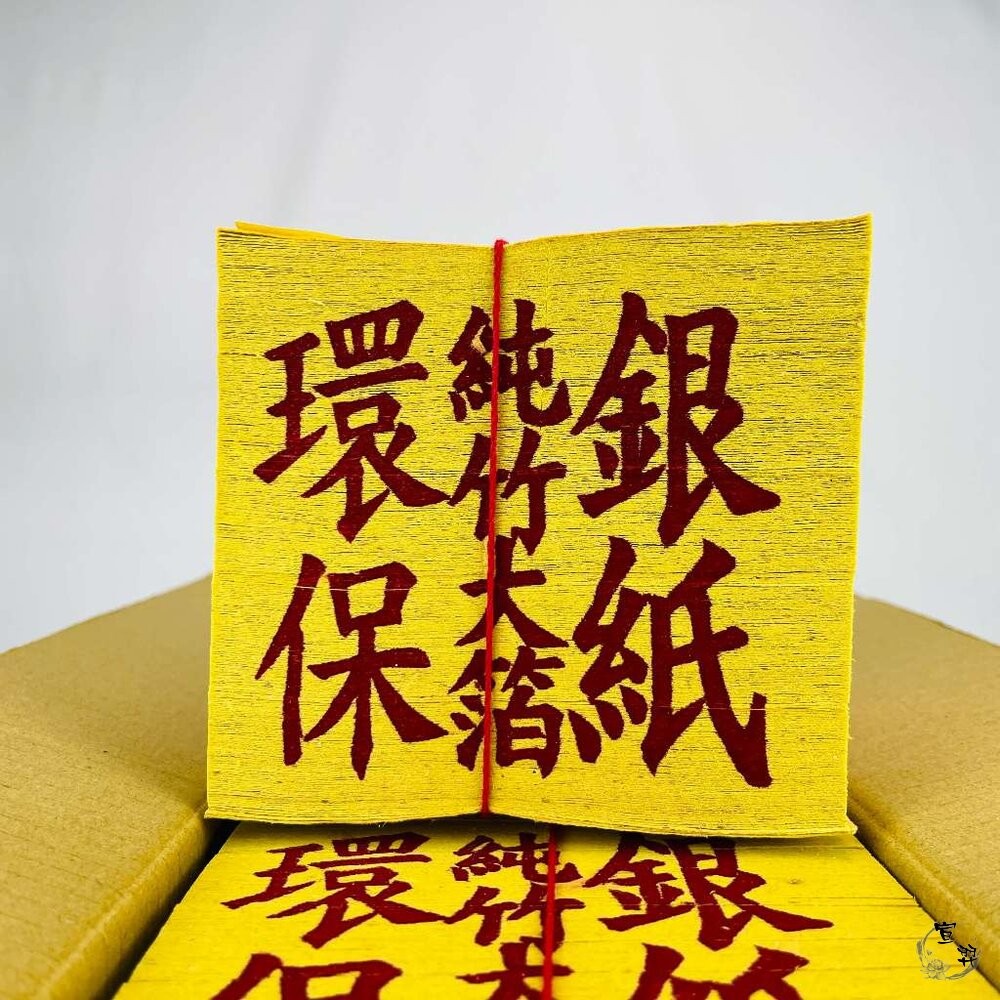 銀紙
純竹大箔
環保
銀紙
純竹大
環保
宣羿